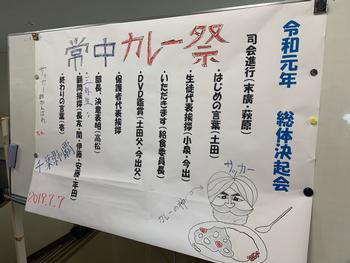 常中カレー祭
令和元年 総体決起会
司会進行(末廣・萩原)
・はじめの言葉(土田)
・生徒代表挨拶(小泉・今出)
・いただきます(給食委員長)
・DVD鑑賞(土田父・今出父)
・保護者代表挨拶
・三年生
・部長、決意表明(高松)
・顧問挨拶(長友・間・伊藤・安藤・平田)
・終わりの言葉(壱)
サッカー
カレーの神
2019.7.7